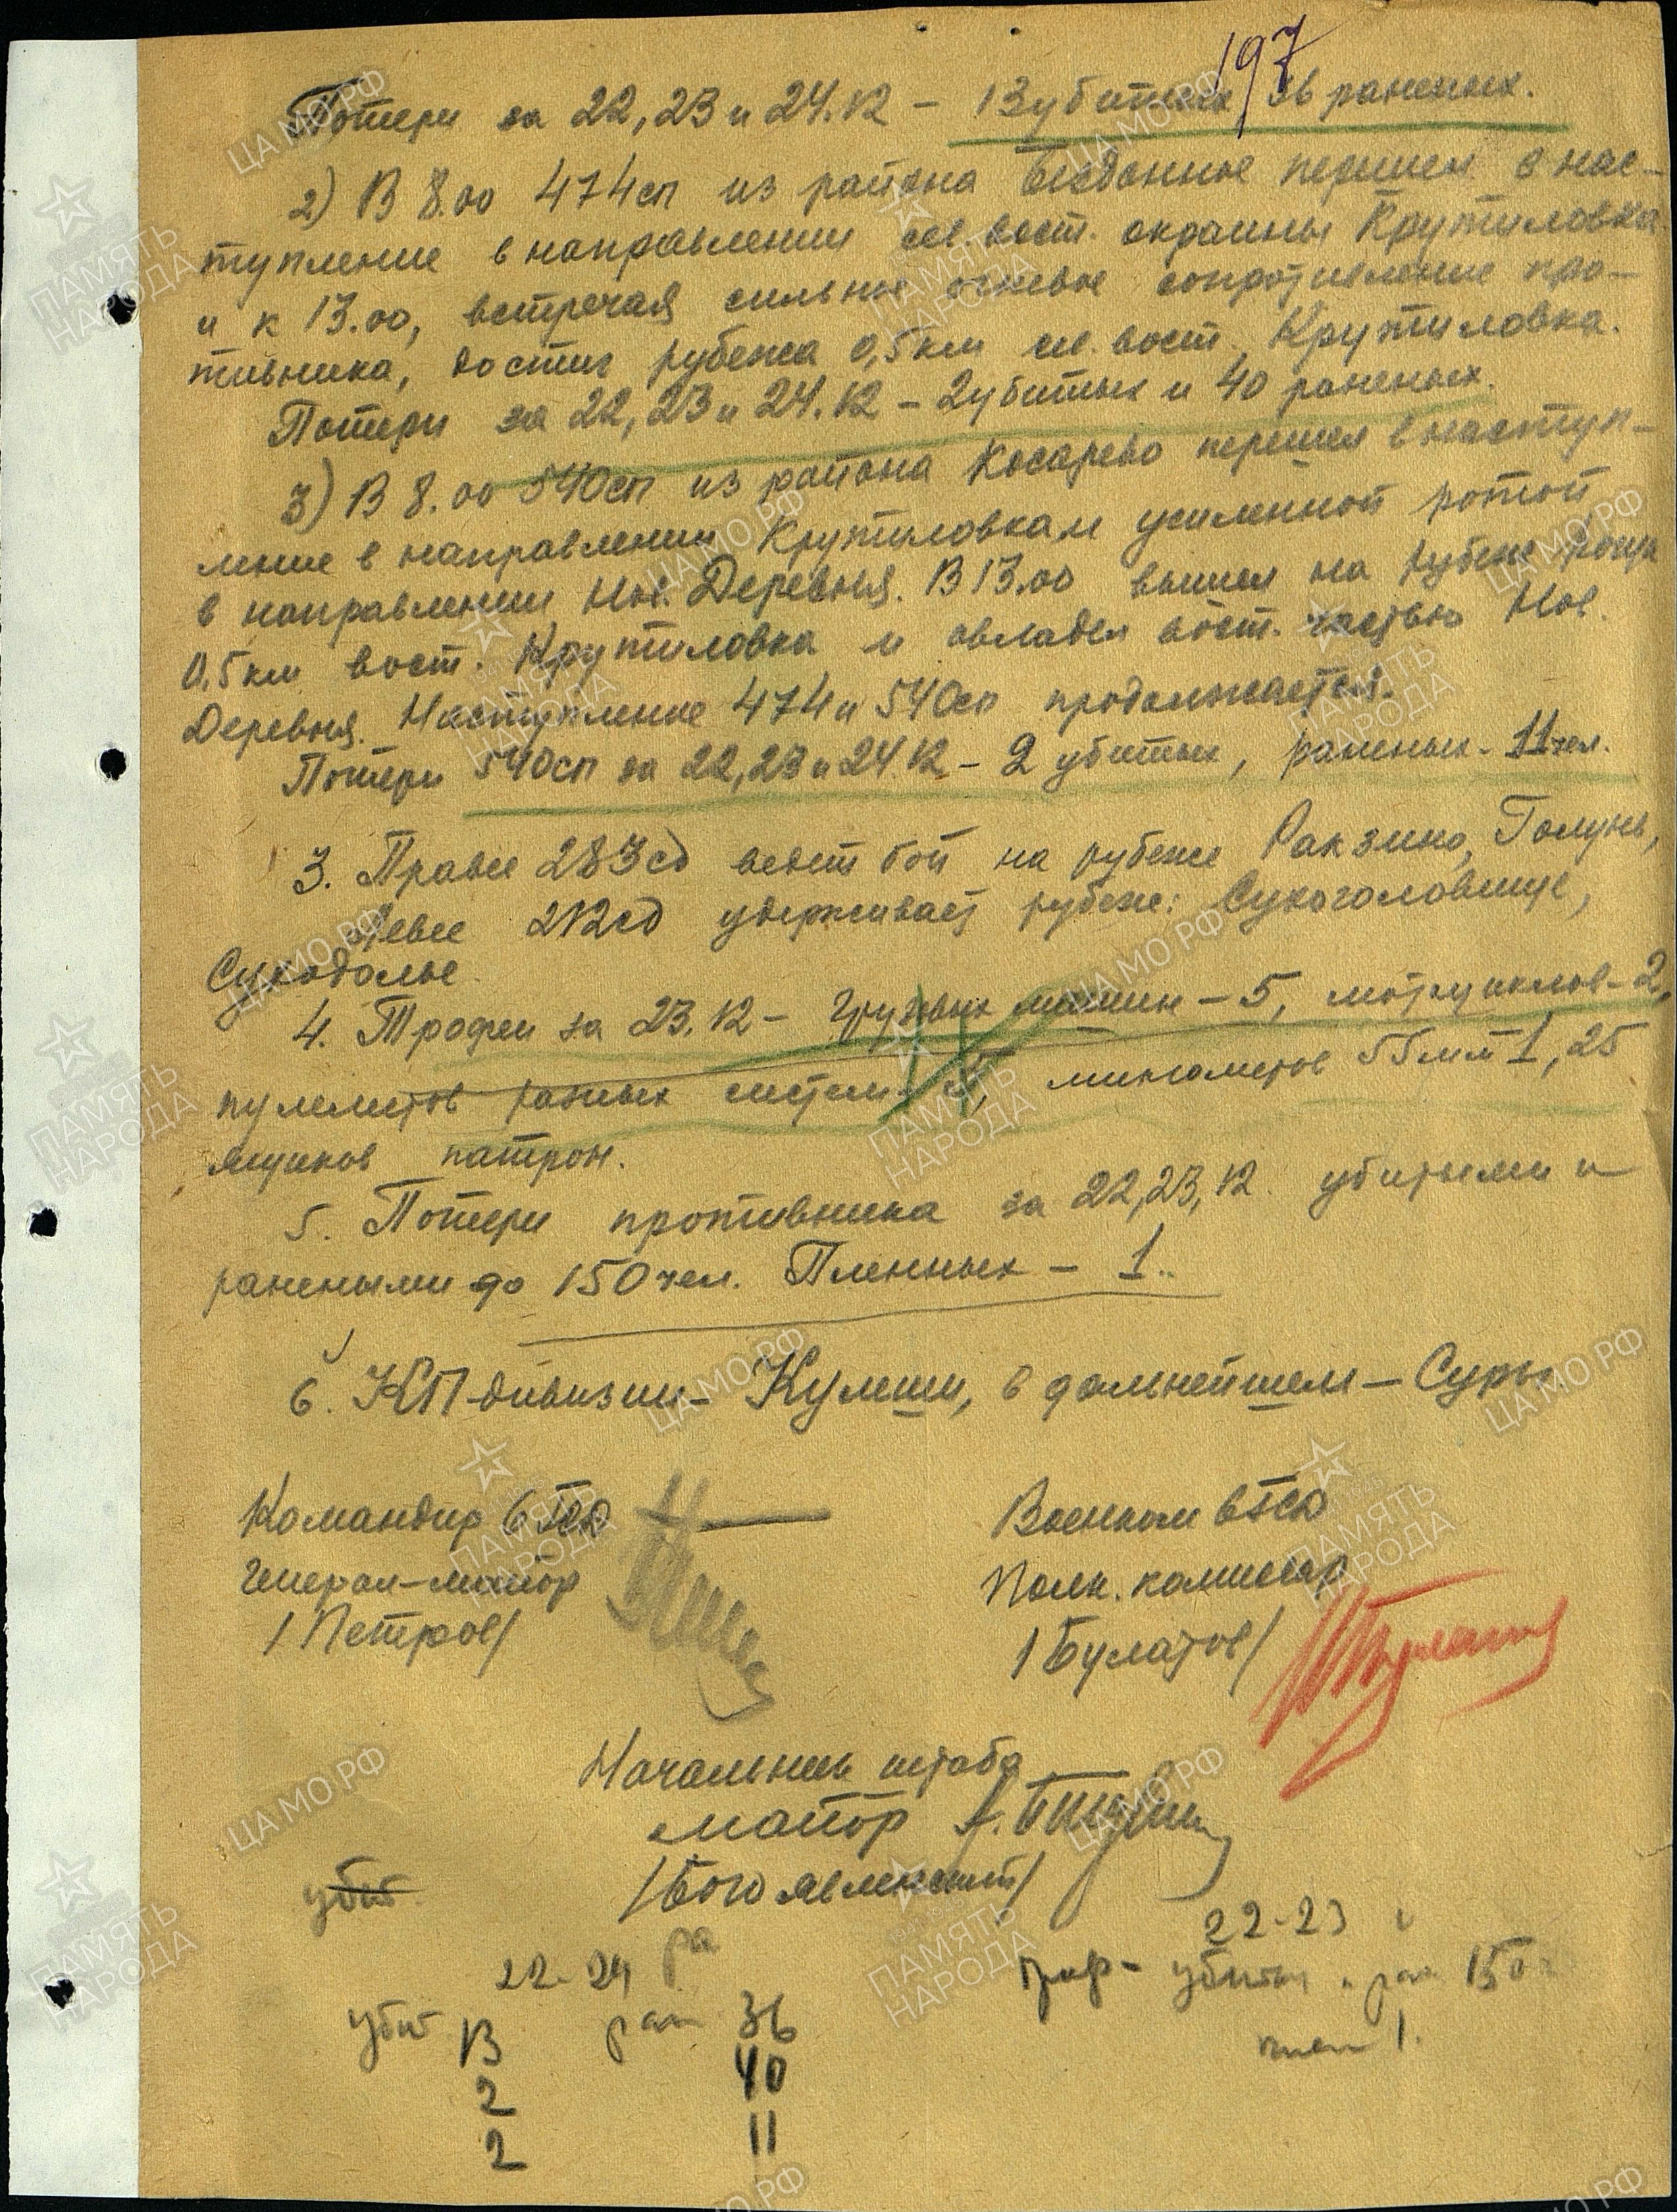 197
Потери за 22, 23 и 24.12 – 13 убитых 36 раненых.
2) В 8.00 474сп из района Бездонное перешел в нас-
тупление в направлении сев. вост. окраины Крутиловка
и к 13.00, встречая сильное огневое сопротивление про-
тивника, достиг рубежа 0,5км сев. вост. Крутиловка.
Потери за 22, 23 и 24.12 – 2 убитых и 40 раненых.
3) В 8.00 540сп из района Косарево перешел в наступ-
ление в направлении Крутиловка и усиленной ротой
в направлении Нов. Деревня. В 13.00 вышел на рубеж роща
0,5км вост. Крутиловка и овладел вост. частью Нов.
Деревня. Наступление 474 и 540сп продолжается.
Потери 540сп за 22, 23 и 24.12 – 2 убитых, раненых - 11 чел.
3. Правее 283сд ведет бой на рубеже Ракзино, Голунь,
Левее 212сд удерживает рубеж: Сухоголовище,
Суходолье.
4. Трофеи за 23.12 – грузовых машин – 5, мотоциклов – 2,
пулеметов разных систем минометов 55мм 1, 25
ящиков патрон.
5. Потери противника за 22, 23, 12. убитыми и
ранеными до 150 чел. Пленных – 1.
6. КП дивизии – Кулеши, в дальнейшем – Суры.
Командир 6 гсд
Генерал-майор
/Петров/
Военком 6гсд
Полк. комиссар
/Булатов/
Начальник штаба
майор
/Богоявленский/
убит
22-24 ра
убит 13 ран 36
2 40
2 11
22-23
убитых и ран 150
плен 1.
ЦА МО РФ
ПАМЯТЬ НАРОДА